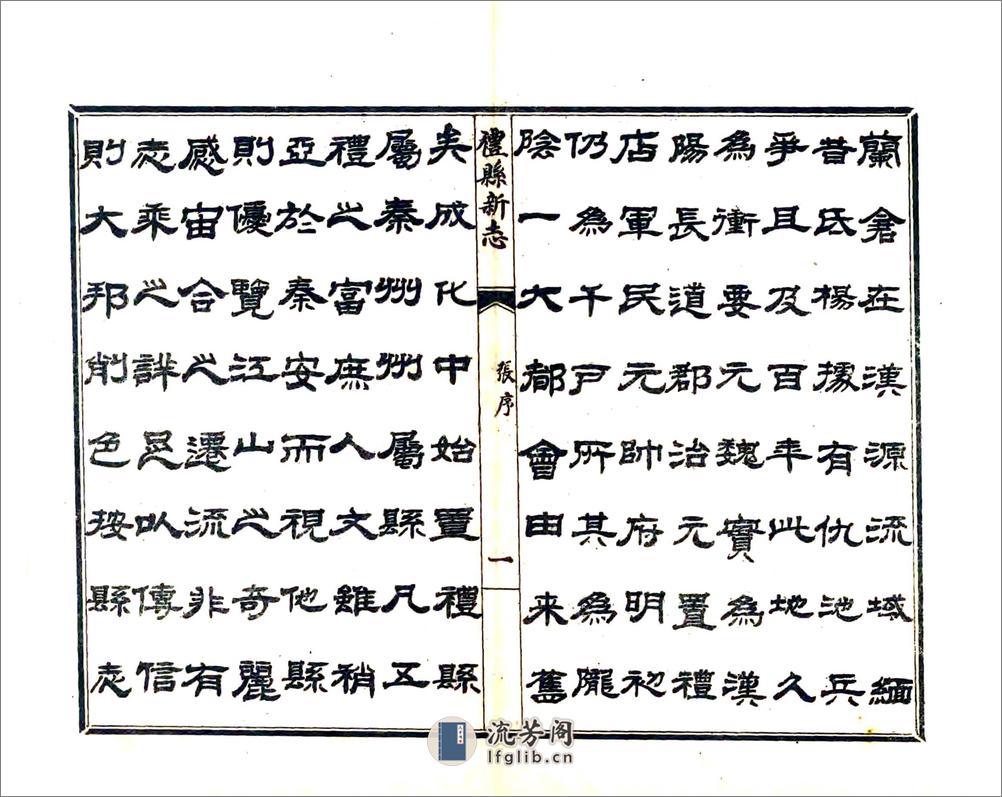 蘭倉在漢源流域緬
昔氐楊據有仇池兵
爭且及百年此地久
為衝要元魏實為漢
陽長道郡治元置禮
店軍民元帥府明初
仍為千戶所其為隴
陰一大都會由来舊
禮縣新志
張序
一
矣成化中始置禮縣
屬秦州州屬縣凡五
禮之富庶人文雖稍
亞於秦安而視他縣
則優覽江山之奇麗
感宙合之遷流非有
志乘之詳曷以傳信
則大邦削色按縣志
流芳阁
lfglib.cn